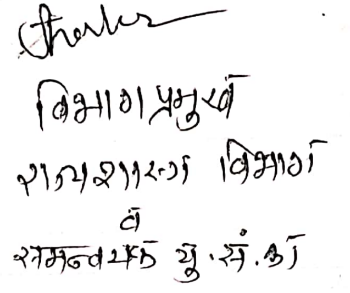 विभाग प्रमुख
राज्यशास्त्र विभाग
व
समन्वयक यु.सं.का